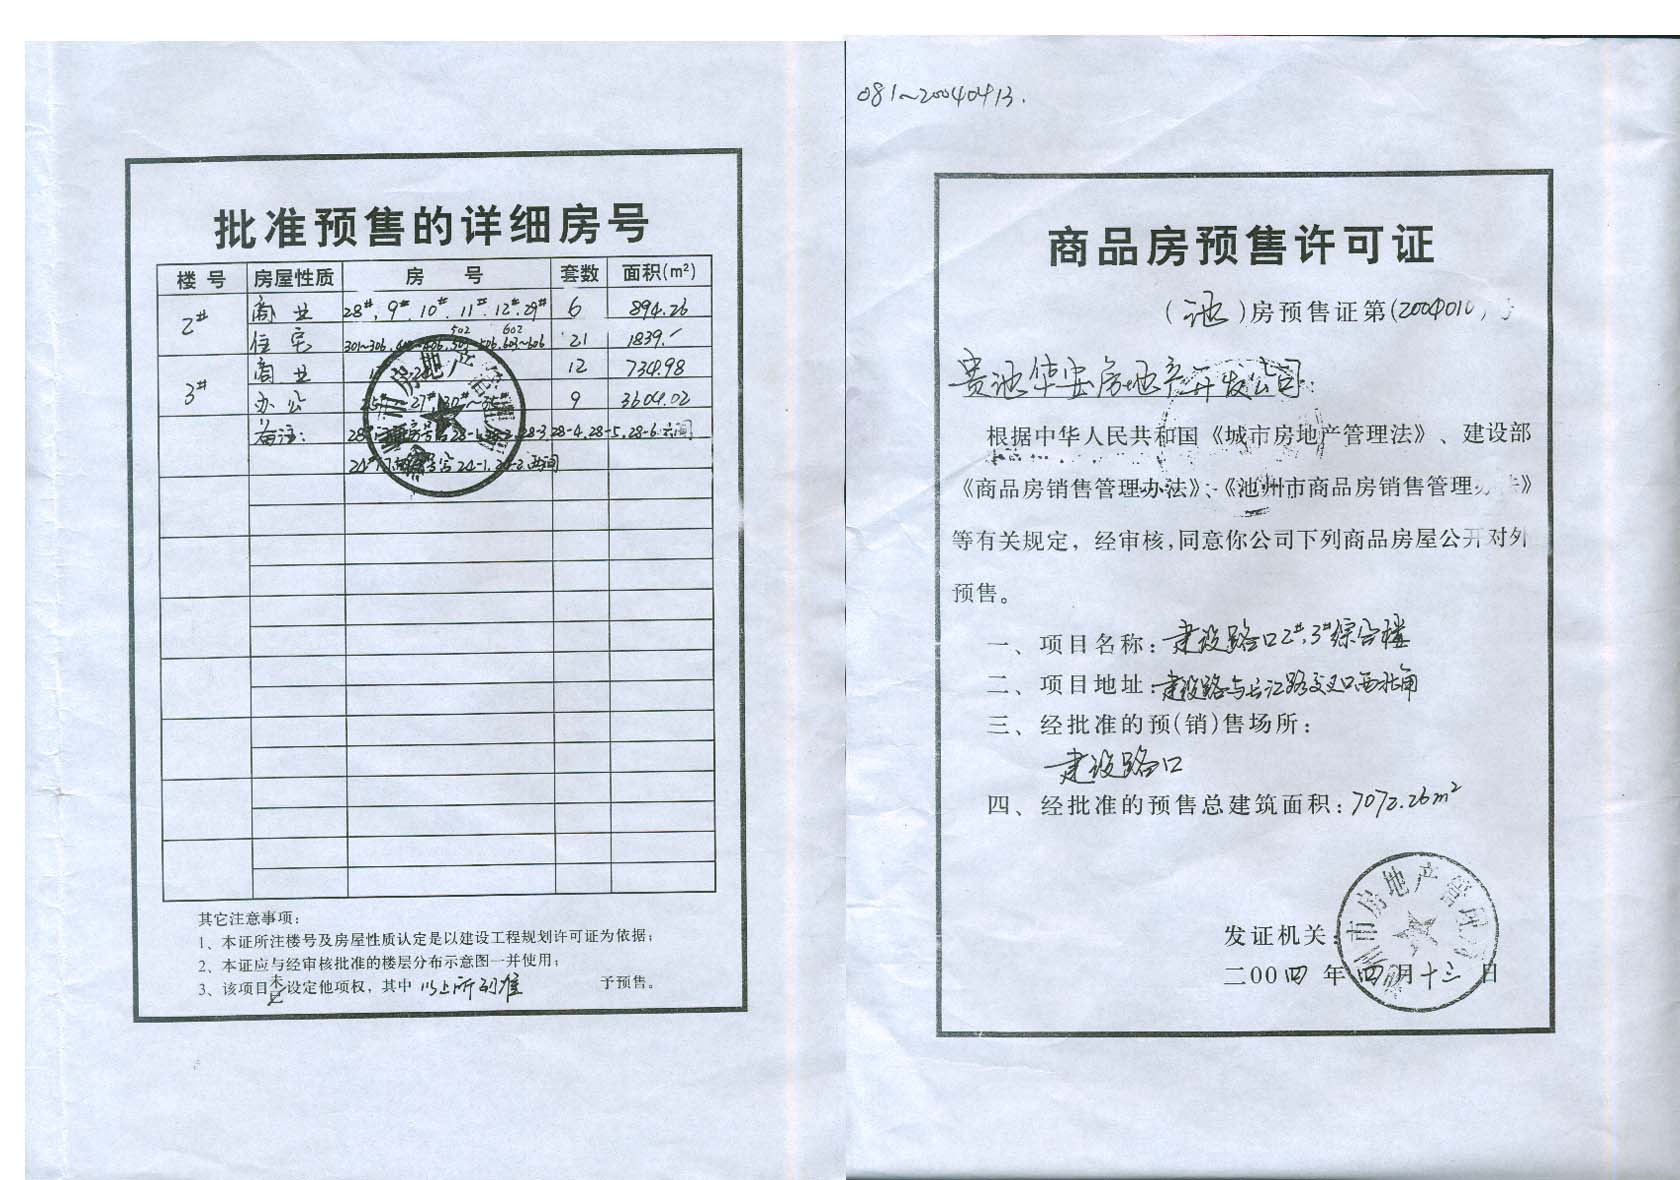 批准预售的详细房号
楼号 房屋性质 房号 套数 面积(m²)
2# 商业 28#,9#,10#,11#,12#,29# 6 894.26
502 602
住宅 301~306 606,603~606 21 1839.-
3# 商业 12 734.98
办公 9 3604.02
备注: 28-3,28-4,28-5,28-6
24-1,24-2两间
市房地产管理局
其它注意事项:
1、本证所注楼号及房屋性质认定是以建设工程规划许可证为依据;
2、本证应与经审核批准的楼层分布示意图一并使用;
3、该项目未设定他项权,其中以上所列准 予预售。
081~20040413.
商品房预售许可证
(池)房预售证第(2004010)号
贵池华安房地产开发公司:
根据中华人民共和国《城市房地产管理法》、建设部
《商品房销售管理办法》、《池州市商品房销售管理办法》
等有关规定,经审核,同意你公司下列商品房屋公开对外
预售。
一、项目名称:建设路口2#,3#综合楼
二、项目地址:建设路与长江路交叉口西北角
三、经批准的预(销)售场所:
建设路口
四、经批准的预售总建筑面积:7072.26m²
发证机关:
二00四年四月十三日
州市房地产管理局